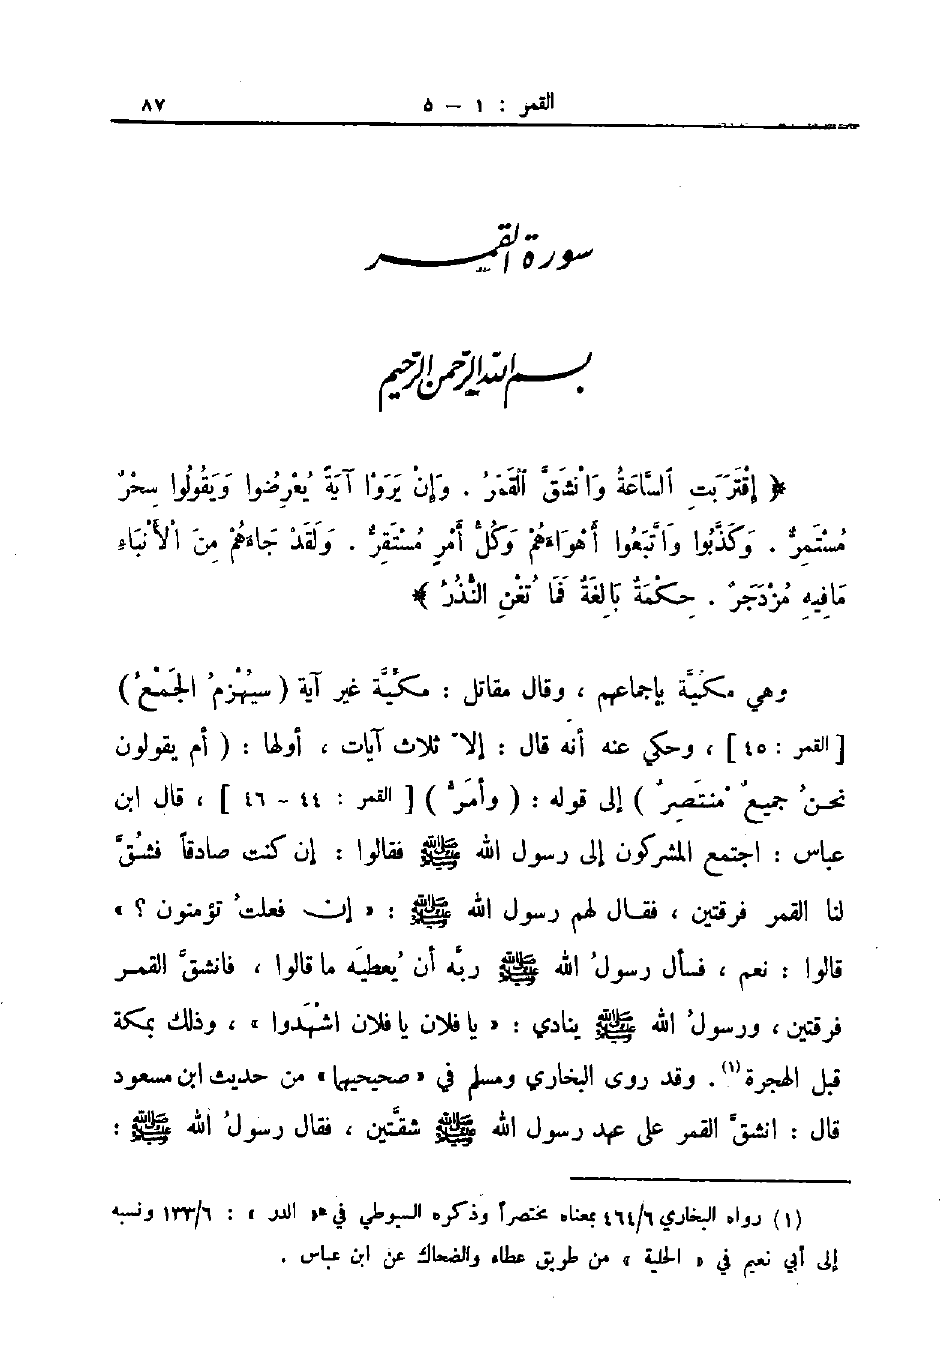 القمر : ١ – ٥ ٨٧
سورة القمر
بسم الله الرحمن الرحيم
﴿ إِقْتَرَبَتِ ٱلسَّاعَةُ وَٱنْشَقَّ ٱلْقَمَرُ . وَإِنْ يَرَوْا آيَةً يُعْرِضُوا وَيَقُولُوا سِحْرٌ
مُسْتَمِرٌّ . وَكَذَّبُوا وَٱتَّبَعُوا أَهْوَاءَهُمْ وَكُلُّ أَمْرٍ مُسْتَقِرٌّ . وَلَقَدْ جَاءَهُمْ مِنَ الْأَنْبَاءِ
مَافِيهِ مُزْدَجَرٌ . حِكْمَةٌ بَالِغَةٌ فَمَا تُغْنِ النُّذُرُ ﴾
وهي مكيَّة بإجماعهم ، وقال مقاتل : مكيَّة غير آية ( سيُهْزمُ الجَمْعُ )
[ القمر : ٤٥ ] ، وحكي عنه أنه قال : إلاَّ ثلاث آيات ، أولها : ( أم يقولون
نحنُ جميعٌ مُنتَصِرٌ ) إلى قوله : ( وأمَرُّ ) [ القمر : ٤٤ – ٤٦ ] ، قال ابن
عباس : اجتمع المشركون إلى رسول الله ﷺ فقالوا : إن كنت صادقاً فشُقَّ
لنا القمر فرقتين ، فقال لهم رسول الله ﷺ : « إن فعلتُ تؤمنون ؟ »
قالوا : نعم ، فسأل رسولُ الله ﷺ ربَّه أن يُعطيَه ما قالوا ، فانشقَّ القمر
فرقتين ، ورسولُ الله ﷺ ينادي : « يا فلان يا فلان اشْهَدوا » ، وذلك بمكة
قبل الهجرة(١) . وقد روى البخاري ومسلم في « صحيحيها » من حديث ابن مسعود
قال : انشقَّ القمر على عهد رسول الله ﷺ شقَّتين ، فقال رسولُ الله ﷺ :
(١) رواه البخاري ٤٦٤/٦ بمعناه مختصراً وذكره السيوطي في « الدر » : ١٣٣/٦ ونسبه
إلى أبي نعيم في « الحلية » من طريق عطاء والضحاك عن ابن عباس .